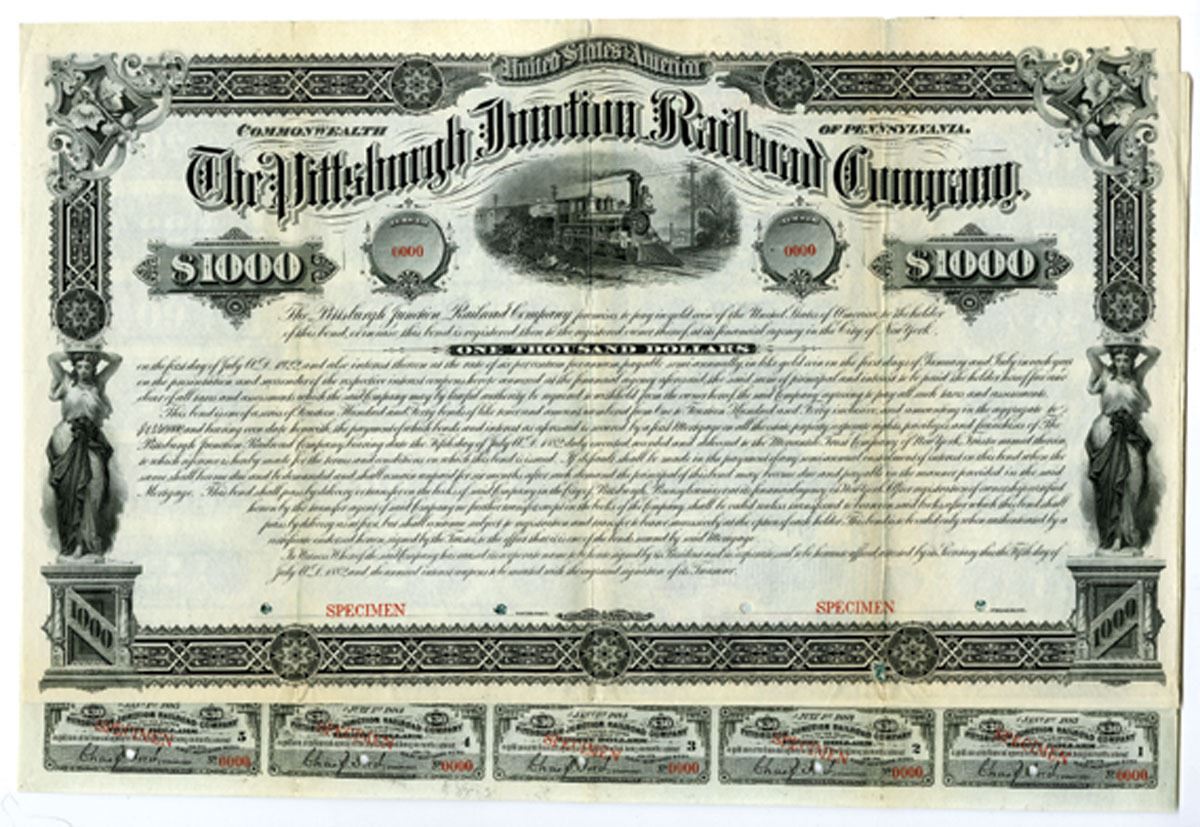 United States of America
COMMONWEALTH OF PENNSYLVANIA.
The Pittsburgh Junction Railroad Company.
NUMBER NUMBER
0000 0000
$1000 $1000
The Pittsburgh Junction Railroad Company promises to pay in gold coin of the United States of America, to the holder
of this bond, or in case this bond is registered, then to the registered owner thereof, at its financial agency in the City of New York,
ONE THOUSAND DOLLARS
on the first day of July A.D. 1922 and also interest thereon at the rate of six per centum per annum payable semi annually in like gold coin on the first days of January and July in each year
on the presentation and surrender of the respective interest coupons hereto annexed at the financial agency aforesaid, the said sum of principal and interest to be paid the holder hereof free and
clear of all taxes and assessments which the said Company may by lawful authority be required to withhold from the owner hereof the said Company agreeing to pay all such taxes and assessments.
This bond is one of a series of Fourteen Hundred and Forty bonds of like tenor and amount, numbered from One to Fourteen Hundred and Forty inclusive, and amounting in the aggregate to
$1,440,000 and bearing even date herewith, the payment of which bonds and interest as aforesaid is secured by a first Mortgage on all the estate, property, rights, privileges and franchises of The
Pittsburgh Junction Railroad Company, bearing date the Fifth day of July A.D. 1882 duly executed, recorded and delivered to the Mercantile Trust Company of New York, Trustee named therein
to which reference is hereby made for the terms and conditions on which this bond is issued. If default shall be made in the payment of any semi annual instalment of interest on this bond when the
same shall become due and be demanded and shall remain unpaid for six months after such demand the principal of this bond may become due and payable in the manner provided in the said
Mortgage. This bond shall pass by delivery or transfer on the books of said Company in the City of Pittsburgh, Pennsylvania or at its financial agency in New York. After registration of ownership certified
hereon by the transfer agent of said Company no further transfer except on the books of the Company shall be valid unless transferred to bearer on said books after which this bond shall
pass by delivery as at first, but shall continue subject to registration and transfer to bearer successively at the option of each holder. This bond is to be valid only when authenticated by a
certificate indorsed hereon, signed by the Trustee, to the effect that it is one of the bonds secured by said Mortgage.
In Witness Whereof the said Company has caused its corporate name to be hereto signed by its President and its corporate seal to be hereunto affixed, attested by its Secretary this the Fifth day of
July A.D. 1882 and the annexed interest coupons to be executed with the engraved signature of its Treasurer.
SPECIMEN SECRETARY. SPECIMEN PRESIDENT.
1000 1000
$30 JAN'Y 1ST 1885 $30 5
SPECIMEN
0000
$30 JULY 1ST 1884 $30 4
SPECIMEN
0000
$30 JAN'Y 1ST 1884 $30 3
SPECIMEN
0000
$30 JULY 1ST 1883 $30 2
SPECIMEN
0000
$30 JAN'Y 1ST 1883 $30 1
SPECIMEN
0000